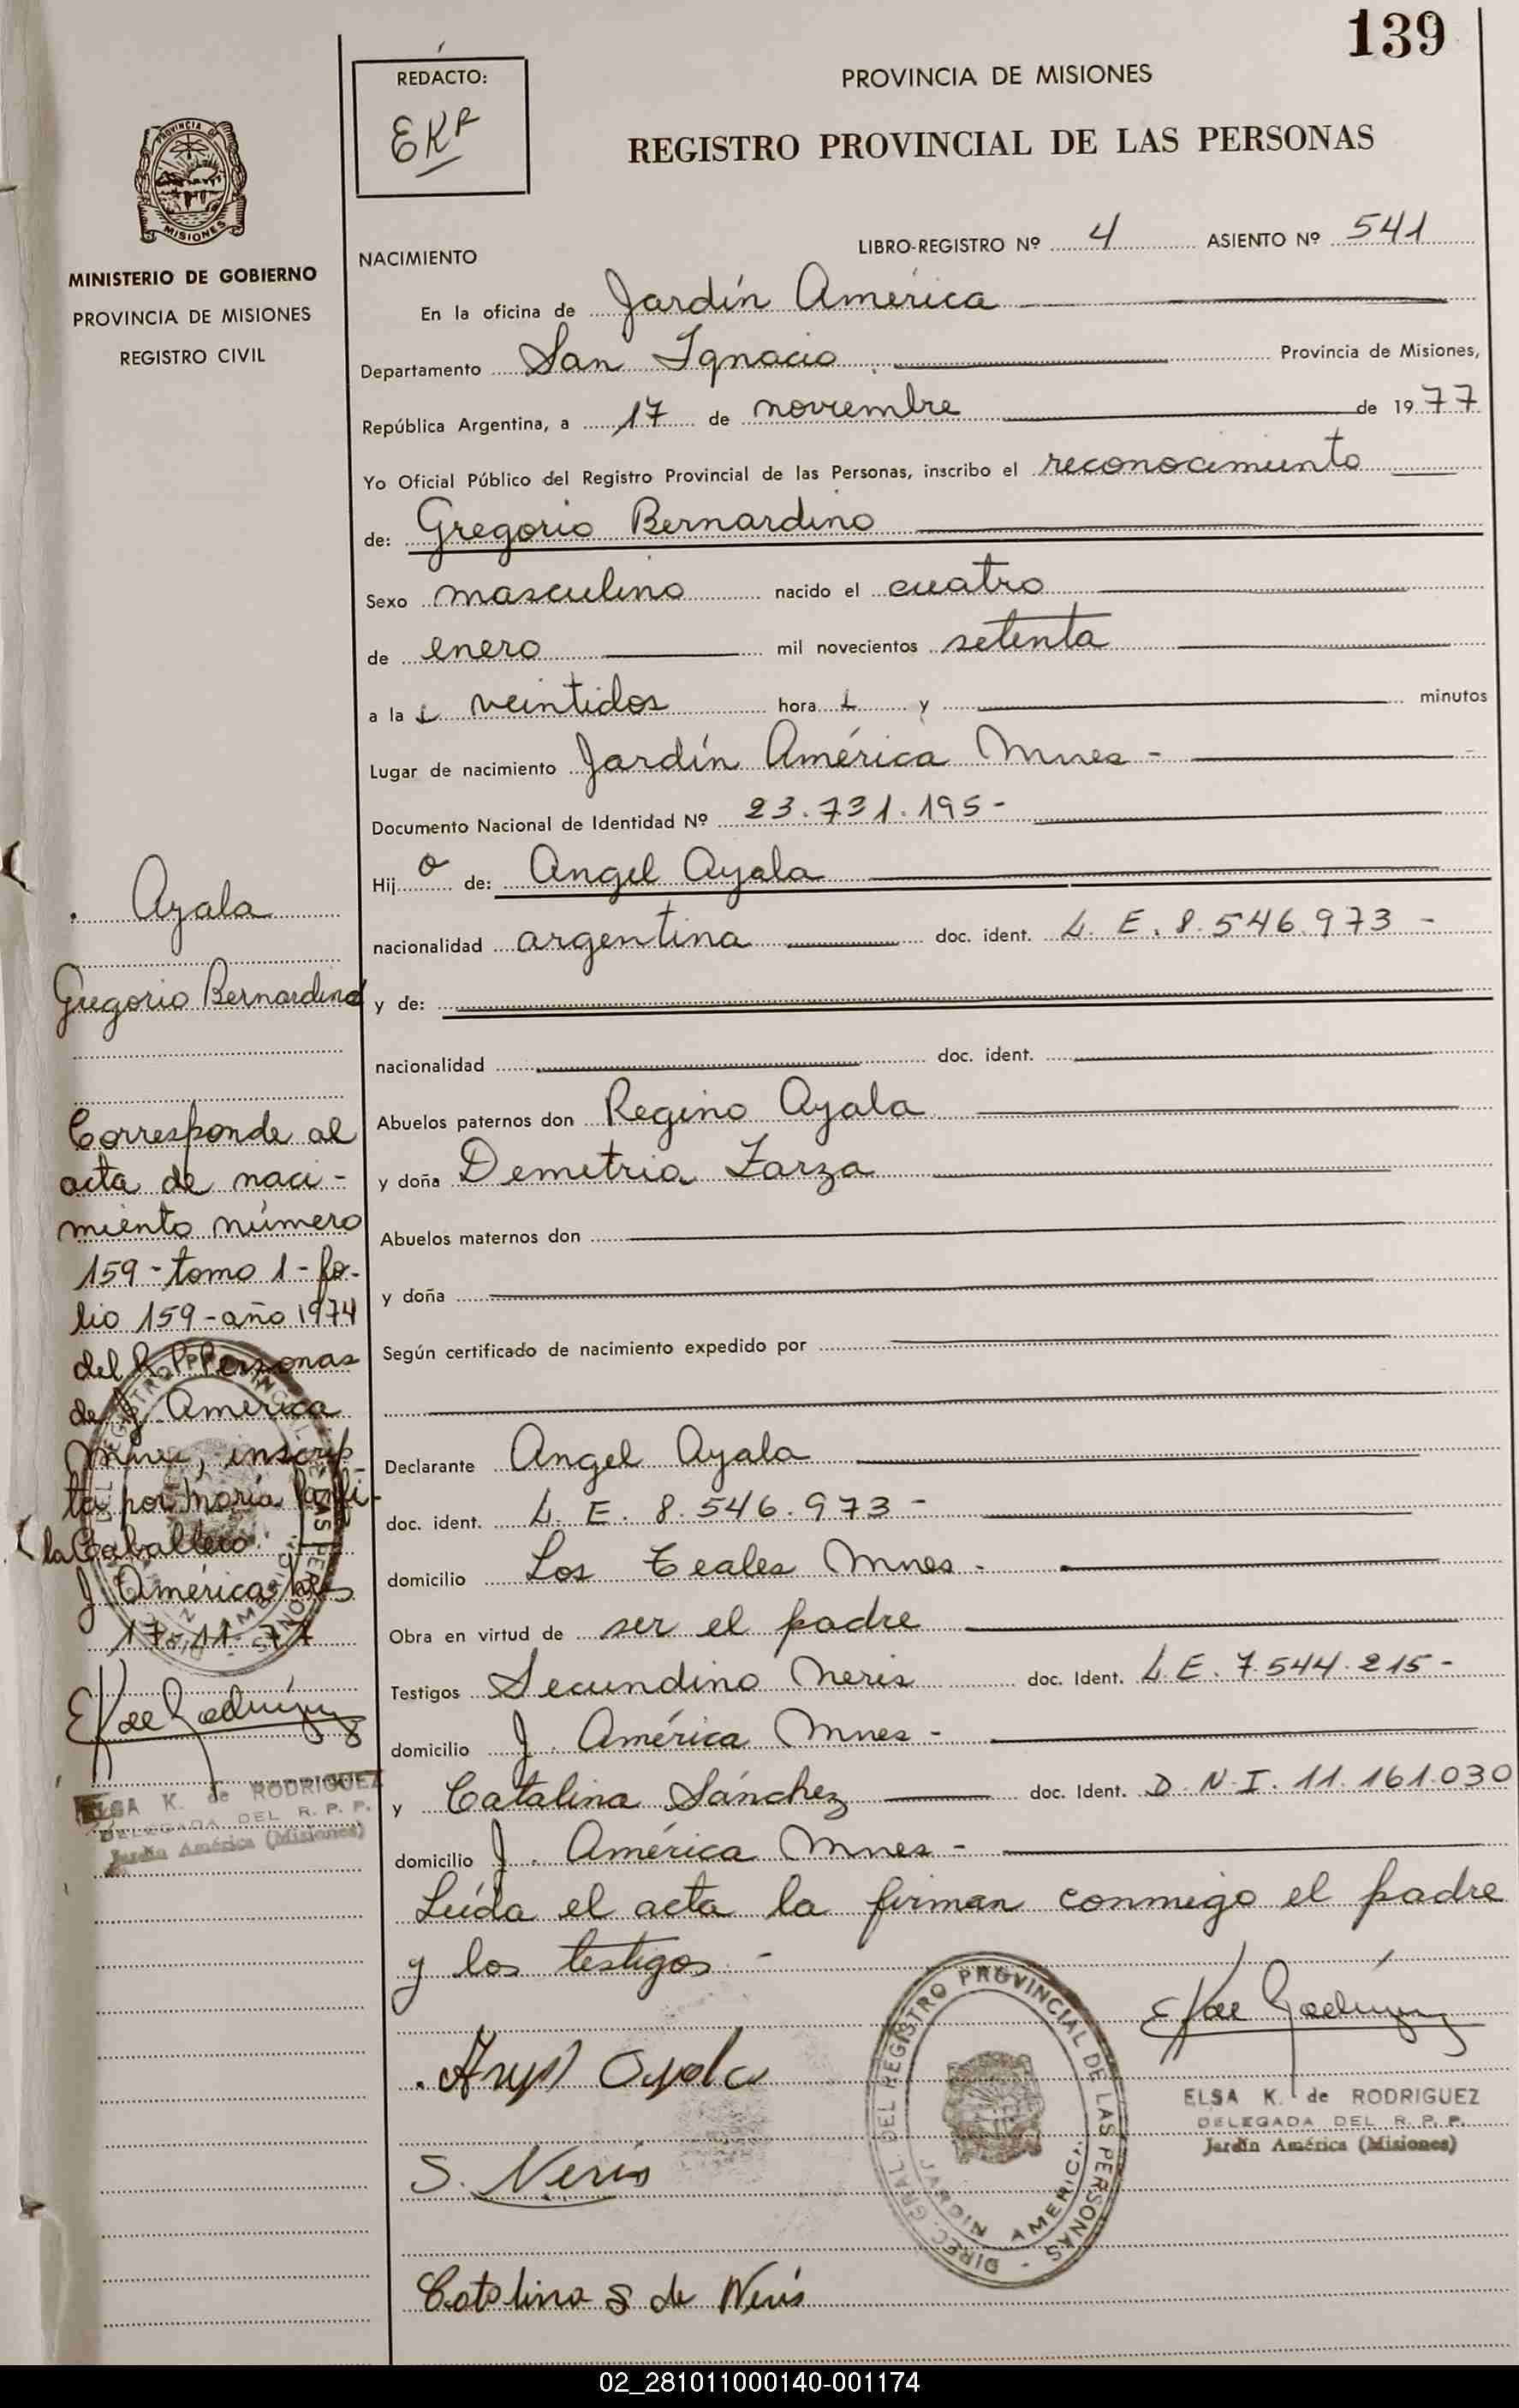 139
REDACTO:
EKR
PROVINCIA DE MISIONES
REGISTRO PROVINCIAL DE LAS PERSONAS
PROVINCIA DE
MISIONES
MINISTERIO DE GOBIERNO
PROVINCIA DE MISIONES
REGISTRO CIVIL
LIBRO-REGISTRO Nº 4 ASIENTO Nº 541
NACIMIENTO
En la oficina de Jardín América
Departamento San Ignacio Provincia de Misiones,
República Argentina, a 17 de noviembre de 1977
Yo Oficial Público del Registro Provincial de las Personas, inscribo el reconocimiento
de: Gregorio Bernardino
Sexo masculino nacido el cuatro
de enero mil novecientos setenta
a la s veintidos hora s y minutos
Lugar de nacimiento Jardín América Mnes -
Documento Nacional de Identidad Nº 23.731.195-
Hij o de: Angel Ayala
nacionalidad argentina doc. ident. L. E. 8.546.973 -
y de:
nacionalidad doc. ident.
Abuelos paternos don Regino Ayala
y doña Demetria Zarza
Abuelos maternos don
y doña
Según certificado de nacimiento expedido por
Declarante Angel Ayala
doc. ident. L. E. 8.546.973 -
domicilio Los Teales Mnes -
Obra en virtud de ser el padre
Testigos Secundino Neris doc. Ident. L.E. 7.544.215-
domicilio J. América Mnes -
y Catalina Sánchez doc. Ident. D.N.I. 11.161.030
domicilio J. América Mnes -
Leída el acta la firman conmigo el padre
y los testigos -
Angel Ayala
S. Neris
Catalina S de Neris
DIREC. GRAL DEL REGISTRO PROVINCIAL DE LAS PERSONAS -
JARDIN AMERICA
EK de Rodríguez
ELSA K. de RODRIGUEZ
DELEGADA DEL R. P. P.
Jardín América (Misiones)
Ayala
Gregorio Bernardino
Corresponde al
acta de naci-
miento número
159 - tomo 1 - fo-
lio 159 - año 1974
del R.P.Personas
de J. América
Mnes, inscrip-
ta por María
la Caballero.
J. América
17-11-77
EK de Rodríguez
ELSA K. de RODRIGUEZ
DELEGADA DEL R. P. P.
Jardín América (Misiones)
02_281011000140-001174